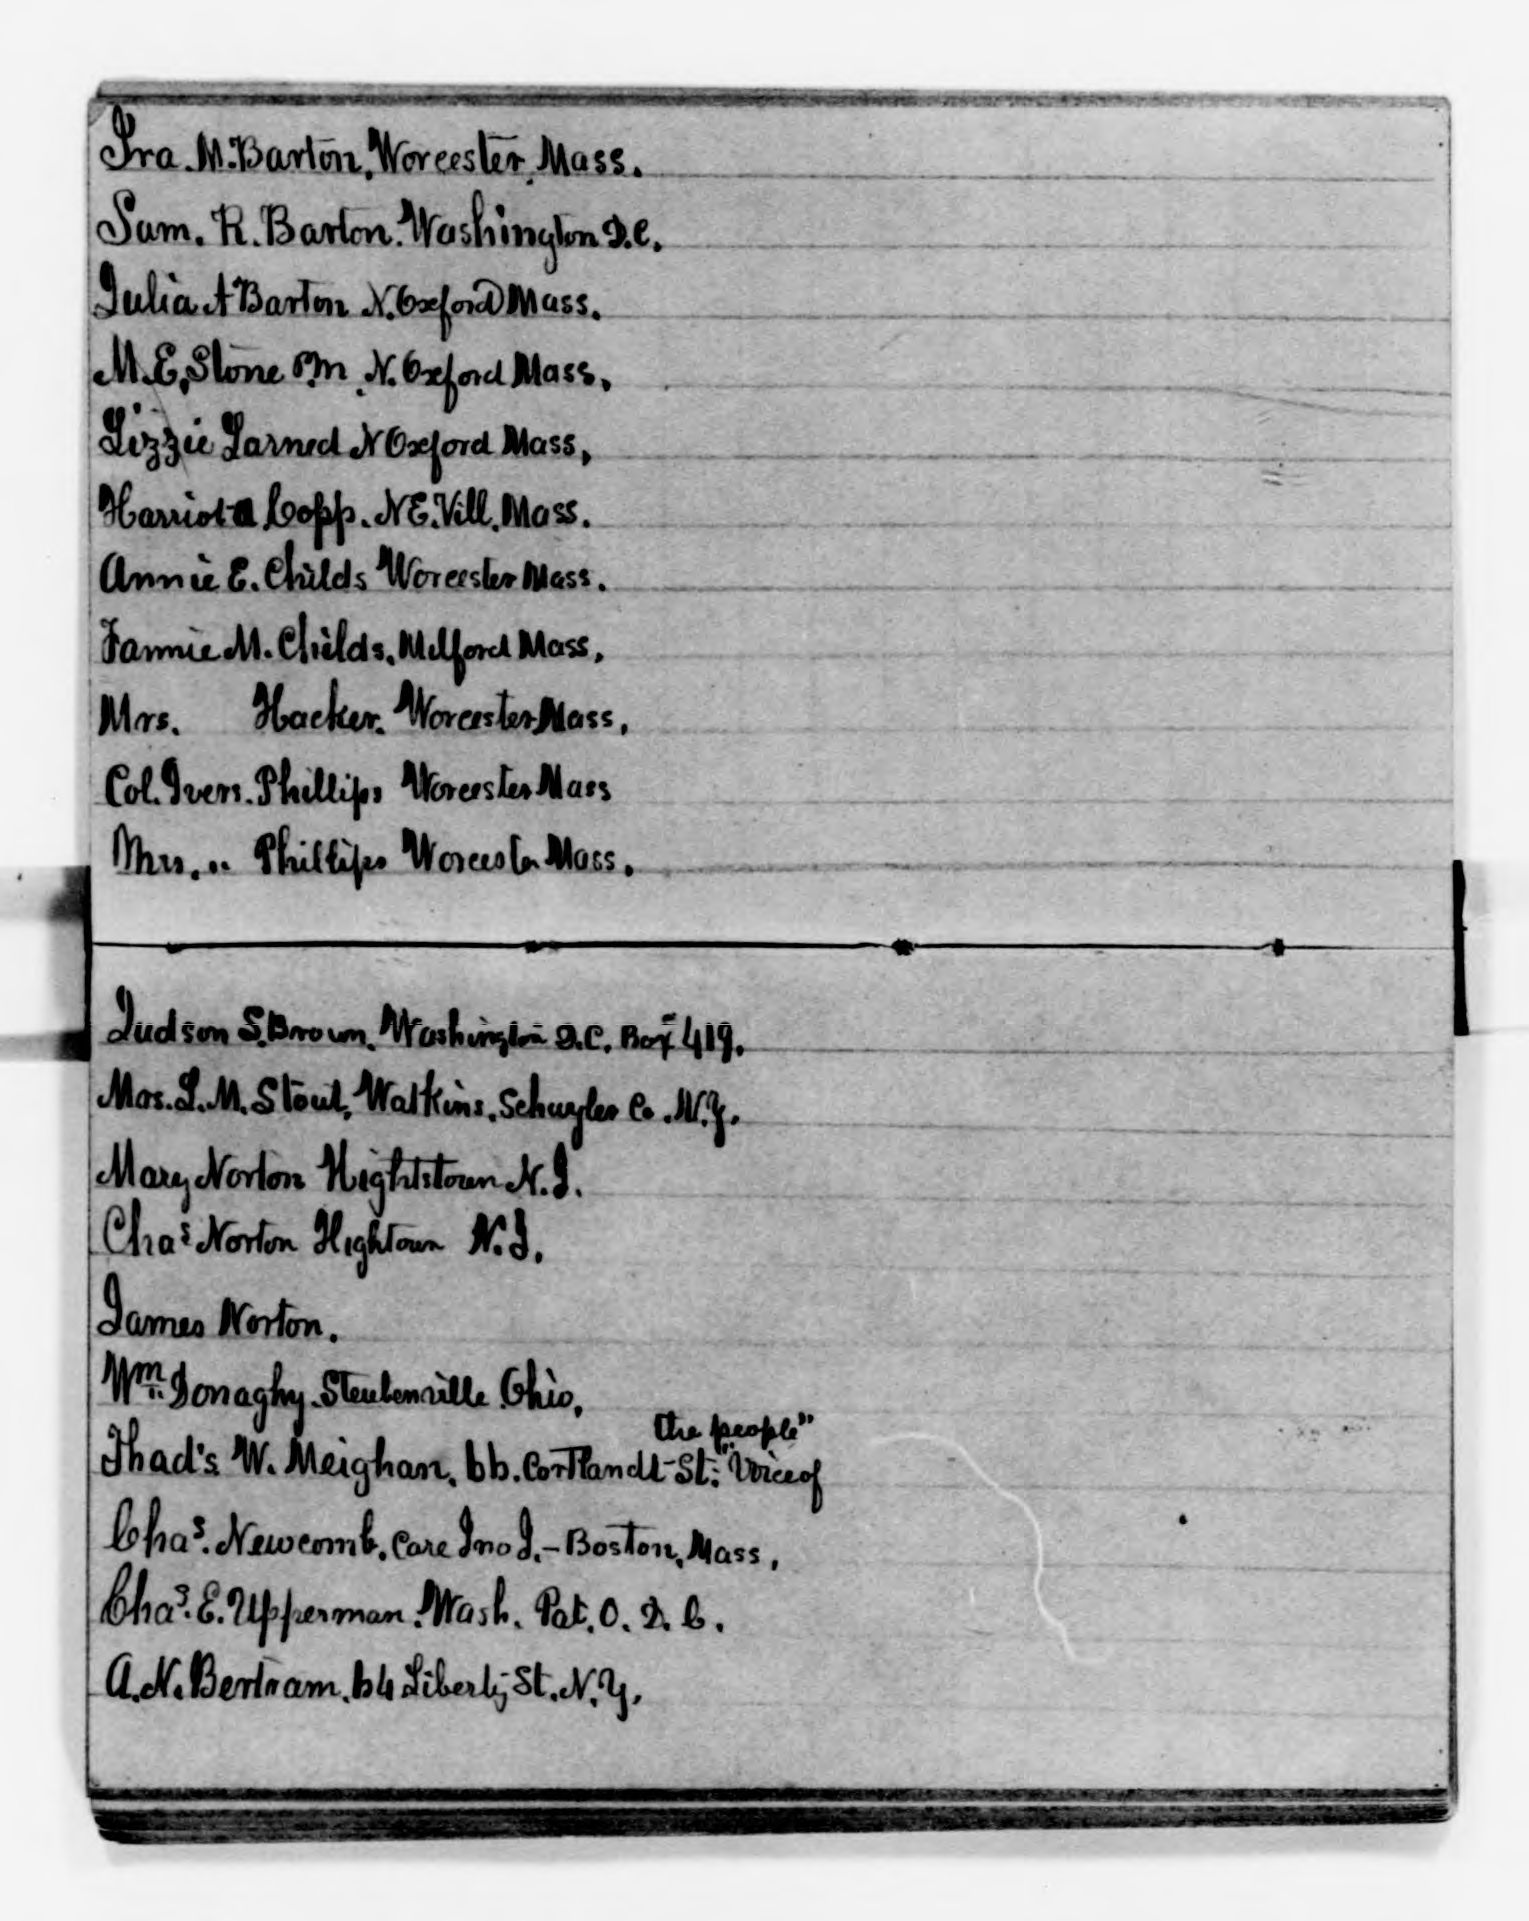 Ira. M. Barton, Worcester, Mass.
Sam. R. Barton. Washington D.C.
Julia A Barton N. Oxford Mass.
M. E. Stone P.M. N. Oxford Mass,
Lizzie Larned N Oxford Mass,
Harriot a Copp. N E. Vill. Mass.
Annie E. Childs Worcester Mass.
Fannie M. Childs, Milford Mass,
Mrs. Hacker. Worcester Mass,
Col. Ivers. Phillips Worcester Mass
Mrs. " Phillips Worcester Mass.
Judson S. Brown. Washington D.C. Box 419.
Mrs. L. M. Stout, Watkins, Schuyler Co. N.Y.
Mary Norton Hightstown N.J.
Chas Norton Hightown N.J.
James Norton.
Wm. Donaghy. Steubenville Ohio,
the people"
Thad's. W. Meighan, 66. Cortlandt St: "Voice of
Chas. Newcomb. Care Jno J. - Boston, Mass,
Chas. E. Upperman. Wash. Pat. O. D. C.
A. N. Bertram. 64 Liberty St. N.Y.